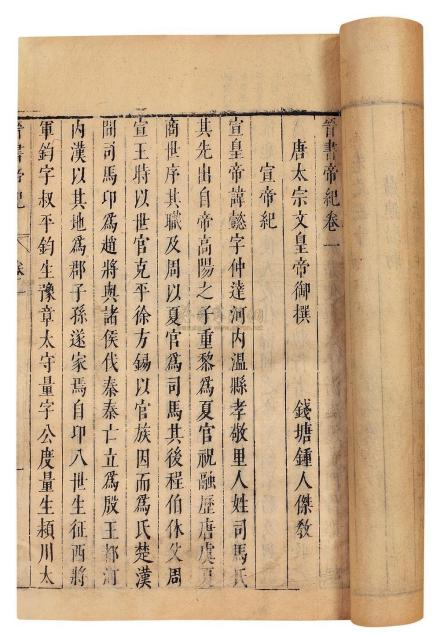 晉書帝紀卷一
唐太宗文皇帝御撰　錢塘鍾人傑敎
宣帝紀
宣皇帝諱懿字仲達河內溫縣孝敬里人姓司馬氏
其先出自帝高陽之子重黎爲夏官祝融歷唐虞夏
商世序其職及周以夏官爲司馬其後程伯休父周
宣王時以世官克平徐方錫以官族因而爲氏楚漢
間司馬卬爲趙將與諸侯伐秦秦亡立爲殷王都河
內漢以其地爲郡子孫遂家焉自卬八世生征西將
軍鈞字叔平鈞生豫章太守量字公度量生潁川太
晉書帝紀 卷一